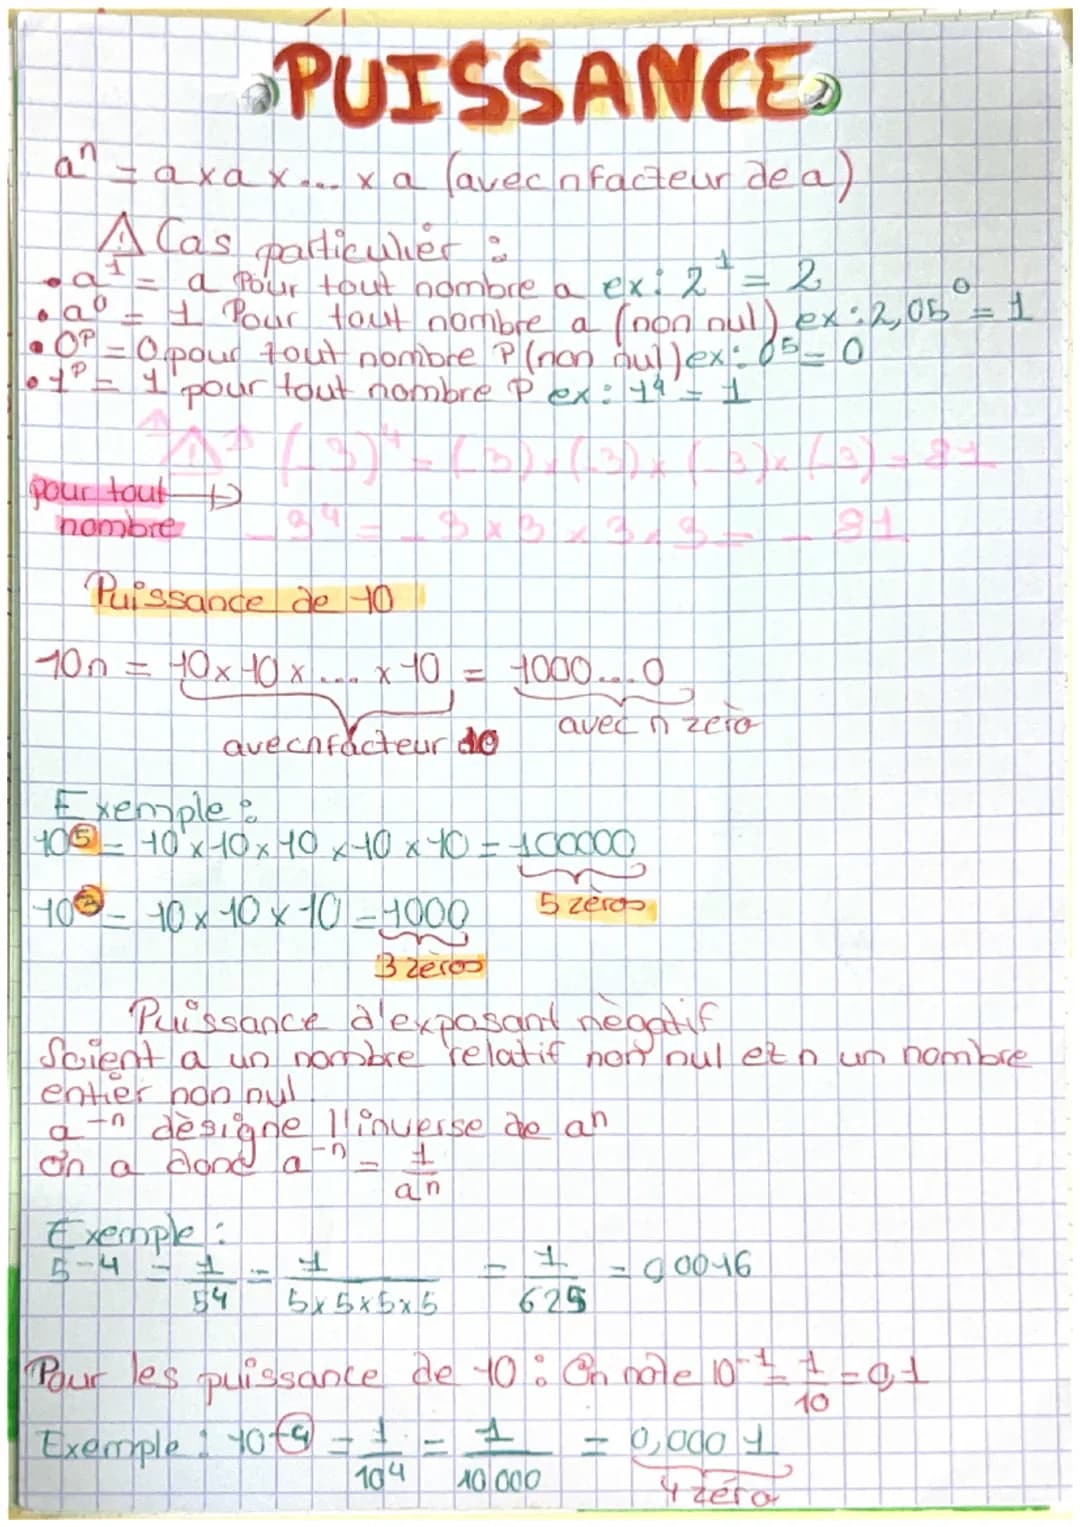 PUISSANCE
aⁿ = a x a x ... x a (avec n facteur de a)
⚠ Cas particulier :
• a¹ = a Pour tout nombre a ex : 2¹ = 2
• a⁰ = 1 Pour tout nombre a (non nul) ex : 2,05⁰ = 1
• 0ᴾ = 0 pour tout nombre P (non nul) ex : 0⁵ = 0
• 1ᴾ = 1 pour tout nombre P ex : 1⁴ = 1
⚠ (-3)⁴ = (-3) x (-3) x (-3) x (-3) = 81
pour tout →
nombre - 3⁴ = - 3 x 3 x 3 x 3 = - 81
Puissance de 10
10n = 10 x 10 x .... x 10 = 1000...0
avec n zéro
avec n facteur 10
Exemple :
10⁵ = 10 x 10 x 10 x 10 x 10 = 100000
5 zéros
10³ = 10 x 10 x 10 = 1000
3 zéros
Puissance d'exposant nègatif
Soient a un nombre relatif non nul et n un nombre
entier non nul
a⁻ⁿ dèsigne l'inverse de an
On a donc a⁻ⁿ = 1/an
Exemple :
5-4 = 1/54 = 1/5x5x5x5 = 1/625 = 0,0016
Pour les puissance de 10 : On note 10⁻¹ = 1/10 = 0,1
Exemple : 10-4 = 1/10⁴ = 1/10 000 = 0,000 1
4 zéro